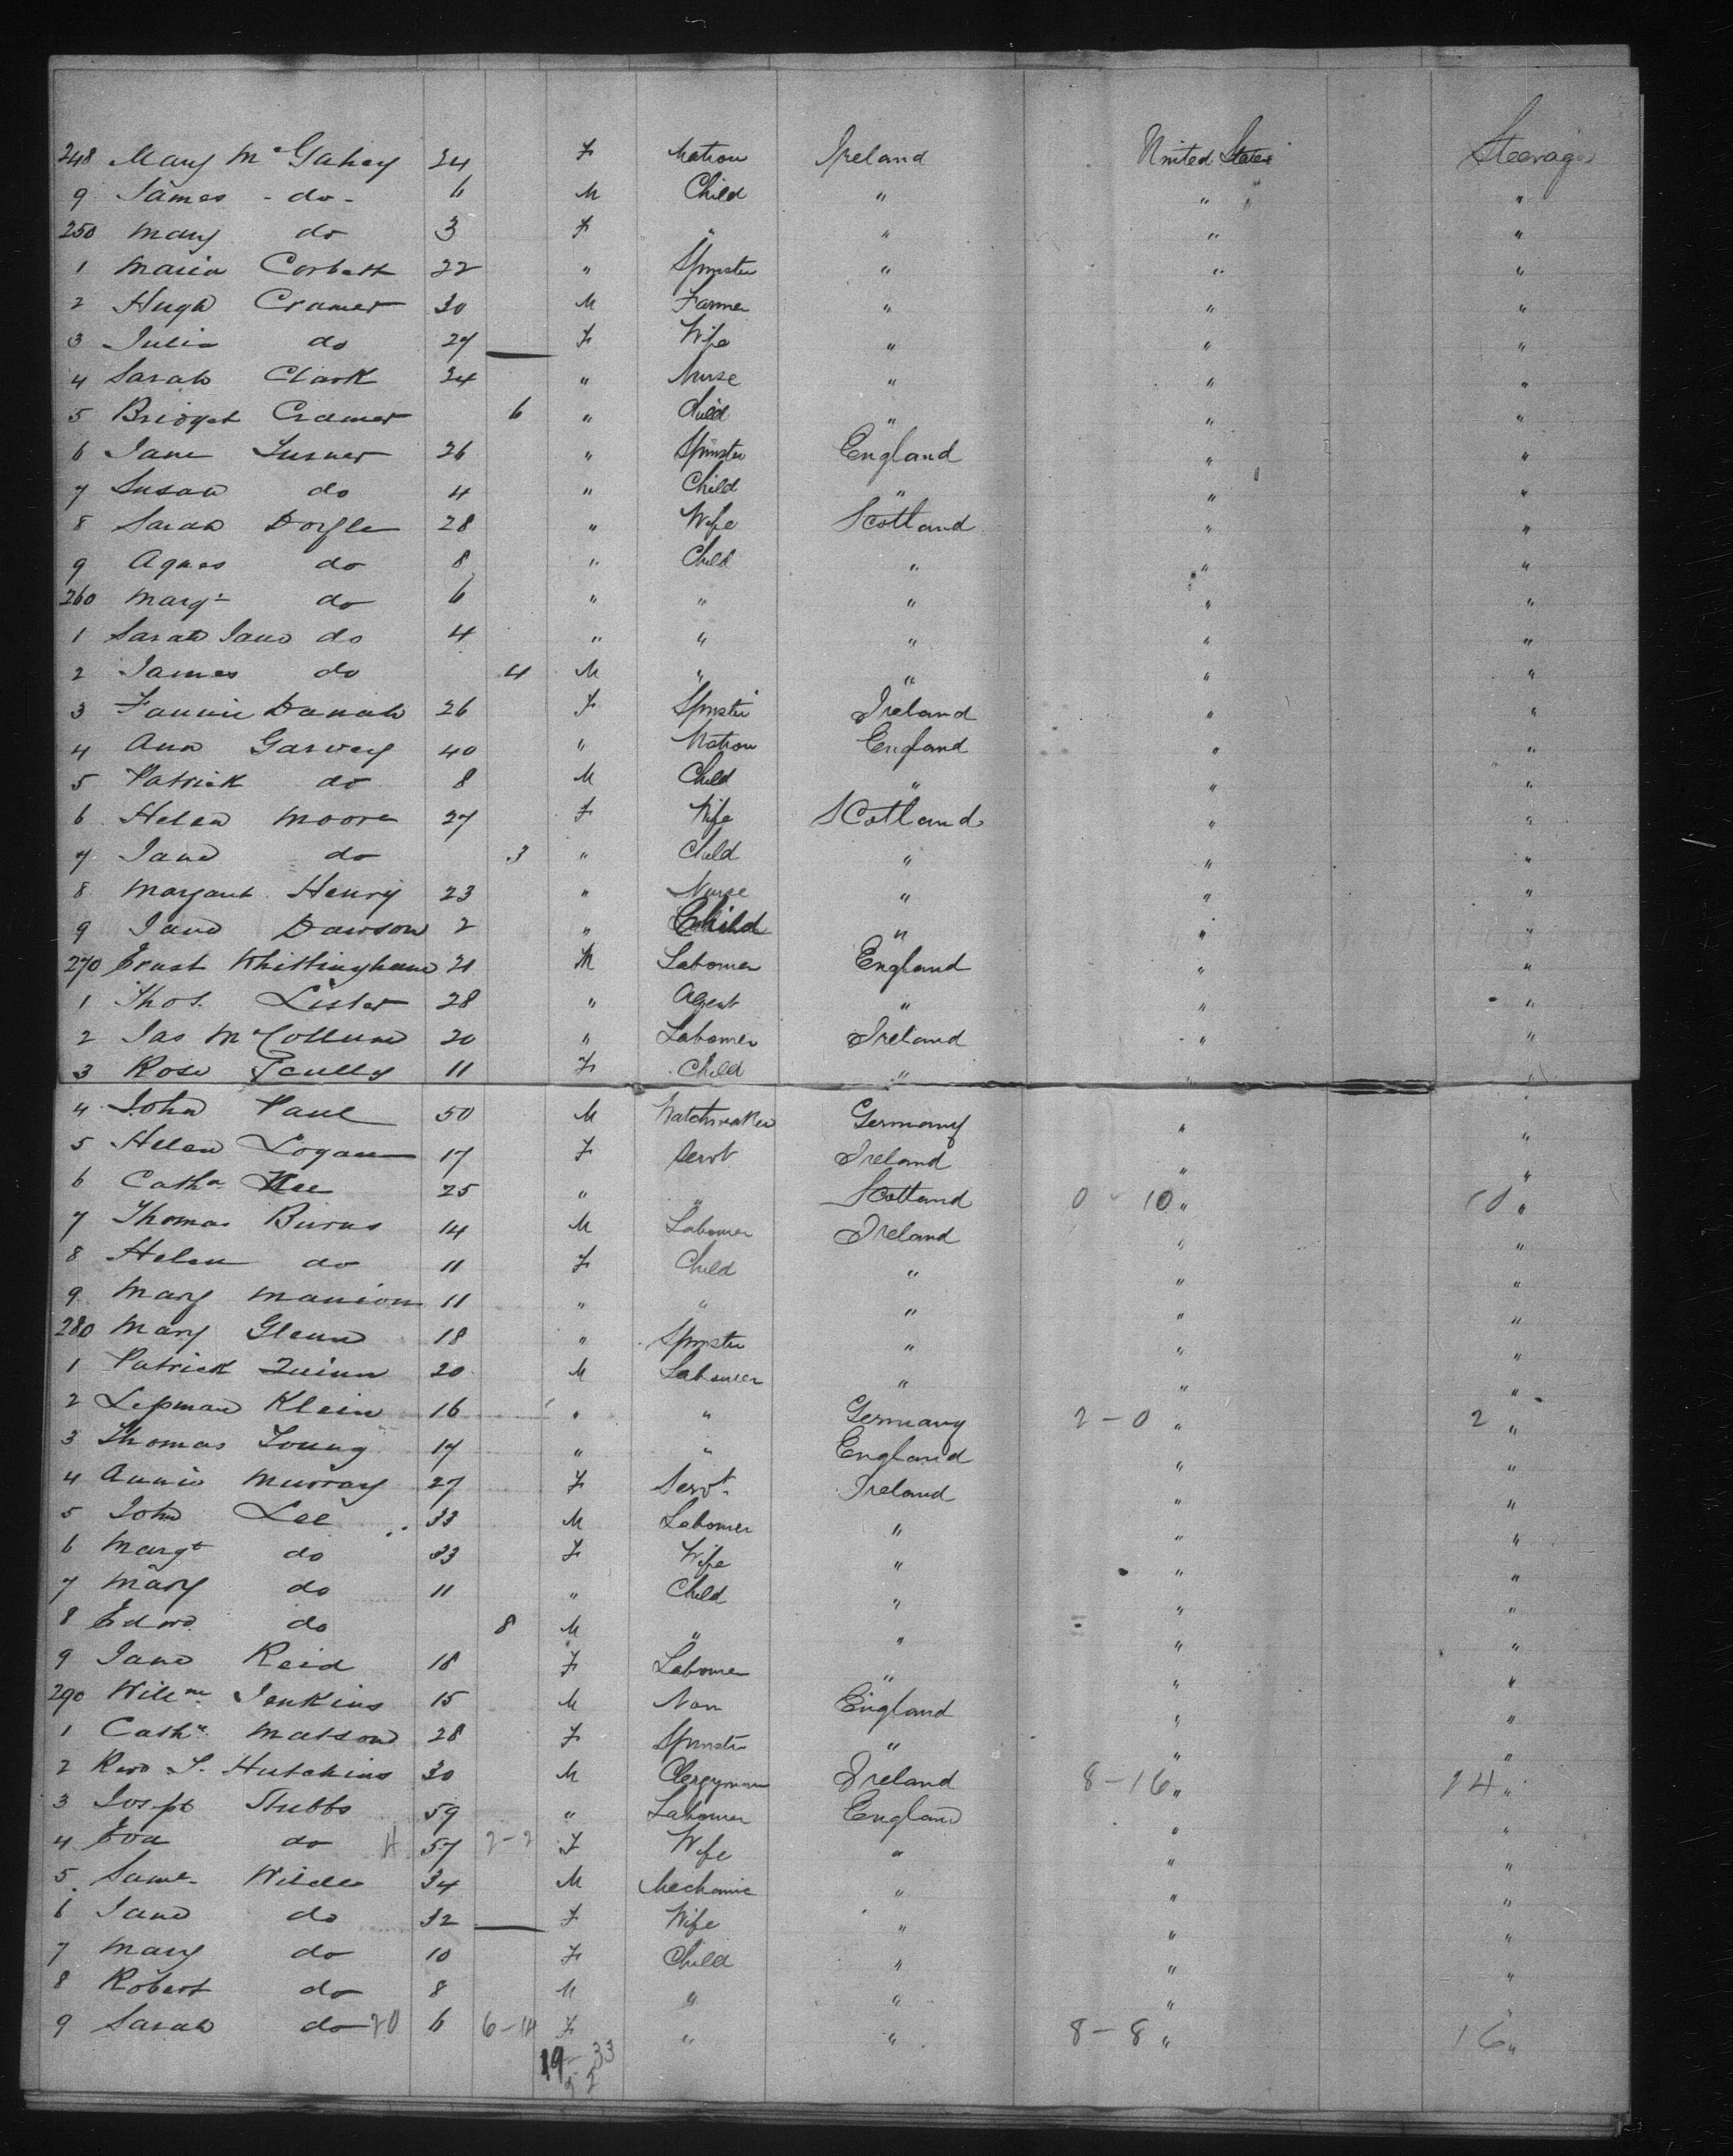 248 Mary McGahey 24 F Matron Ireland United States Steerage
9 James - do - 6 M Child " " "
250 Mary do 3 F " " " "
1 Maria Corbett 22 " Spinster " " "
2 Hugh Cramer 30 M Farmer " " "
3 Julia do 27 F Wife " " "
4 Sarah Clark 34 " Nurse " " "
5 Bridget Cramer 6 " Child " " "
6 Jane Turner 26 " Spinster England " "
7 Susan do 4 " Child " " "
8 Sarah Doyle 28 " Wife Scotland " "
9 Agnes do 8 " Child " " "
260 Margt do 6 " " " " "
1 Sarah Jane do 4 " " " " "
2 James do 4 M " " " "
3 Fannie Danah 26 F Spinster Ireland " "
4 Ann Garvey 40 " Matron England " "
5 Patrick do 8 M Child " " "
6 Helen Moore 27 F Wife Scotland " "
7 Jane do 3 " Child " " "
8 Margaret Henry 23 " Nurse " " "
9 Jane Dawson 2 " Child " " "
270 Ernst Whittingham 21 M Labourer England " "
1 Thos. Lister 28 " Agent " " "
2 Jas McCollum 20 " Labourer Ireland " "
3 Rose Scully 11 F Child " " "
4 John Paul 50 M Watchmaker Germany " "
5 Helen Logan 17 F Servt Ireland " "
6 Catha Kee 25 " " Scotland 0 - 10 " 10 "
7 Thomas Burns 14 M Labourer Ireland " "
8 Helen do 11 F Child " " "
9 Mary Manion 11 " " " " "
280 Mary Glenn 18 " Spinster " " "
1 Patrick Quinn 20 M Labourer " " "
2 Lipman Klein 16 " " Germany 2 - 0 " 2 "
3 Thomas Young 17 " " England " "
4 Annie Murray 27 F Servt Ireland " "
5 John Lee 33 M Labourer " " "
6 Margt do 33 F Wife " " "
7 Mary do 11 " Child " " "
8 Edwd do 8 M " " " "
9 Jane Reid 18 F Labourer " " "
290 Willm Jenkins 15 M Non England " "
1 Cathe Matson 28 F Spinster " " "
2 Revd S. Hutchins 30 M Clergyman Ireland 8 - 16 " 24 "
3 Joseph Stubbs 59 " Labourer England " "
4 Eva do 4 57 2 - 2 F Wife " " "
5 Saml Wilde 34 M Mechanic " " "
6 Jane do 32 F Wife " " "
7 Mary do 10 F Child " " "
8 Robert do 8 M " " " "
9 Sarah do 20 6 6 - 14 F " " 8 - 8 " 16 "
19 - 33
52